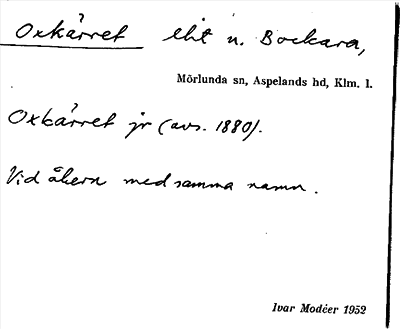 Oxkärret lht u. Bockara,
Mörlunda sn, Aspelands hd, Klm. l.
Oxkärret jr (avs. 1880).
Vid åkern med samma namn.
Ivar Modéer 1952